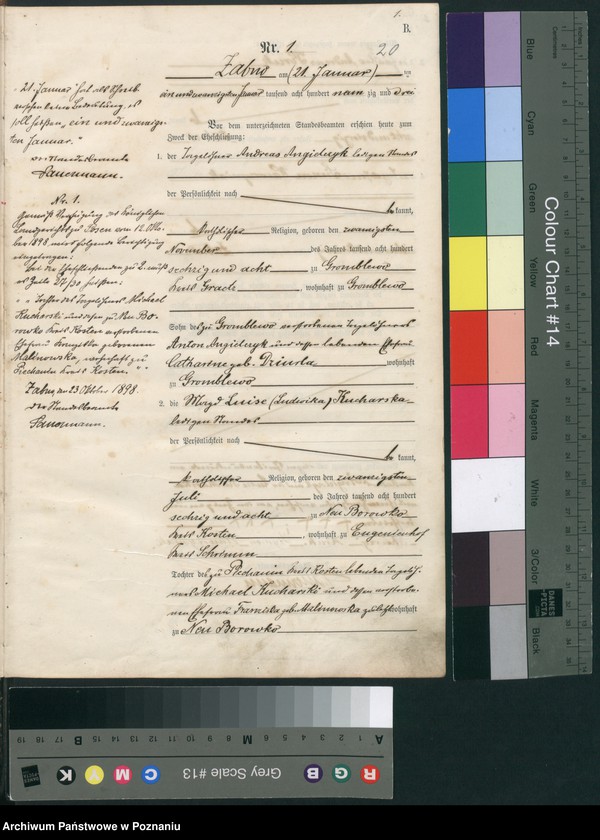 1.
B.
Nr. 1.
20
Zabno am (21. Januar) ten
ein und zwanzigsten Januar tausend acht hundert neun zig und drei
Vor dem unterzeichneten Standesbeamten erschien heute zum
Zweck der Eheschließung:
1. der Andreas ledigen Standes
der Persönlichkeit nach
kannt,
katholischer Religion, geboren den zwanzigsten
November des Jahres tausend acht hundert
sechzig und acht zu Gromblewo
Kreis , wohnhaft zu Gromblewo
Sohn des zu Gromblewo verstorbenen
Anton und dessen lebenden Ehefrau
wohnhaft
zu Gromblewo
2. die Magd Luise (Ludwika) Kucharska
ledigen Standes
der Persönlichkeit nach
kannt,
katholischer Religion, geboren den zwanzigsten
Juli des Jahres tausend acht hundert
sechzig und acht zu Neu Borowko
Kreis Kosten , wohnhaft zu Eugenienhof
Kreis Schrimm
Tochter des zu Piechanin Kreis Kosten lebenden
Michael Kucharski und dessen verstorbe-
nen Ehefrau Franziska geb. Malinowska zuletzt wohnhaft
zu Neu Borowko
"21. Januar" hat als
soll heißen "ein und zwanzig-
ten Januar."
Der Standesbeamte
Nr. 1.
Gemäß Verfügung des Königlichen
Landgerichts zu Posen vom 12. Okto-
ber 1898 wird folgende Berichtigung
eingetragen:
Bei der Eheschließenden zu 2. muß
es Zeile 27/30 heißen:
"Tochter des Michael
Kucharski und der zu Neu Bo-
rowko Kreis Kosten verstorbenen
Ehefrau geborenen
Malinowska, wohnhaft zu
Piechanin Kreis Kosten."
Zabno, den 23 Oktober 1898.
Der Standesbeamte
Colour Chart #14
Blue
Cyan
Green
Yellow
Red
Magenta
White
3/Color
Black
Centimetres
Inches
DANES
PICTA
Grey Scale #13
R
G
B
C
M
Y
K
A 1 2 3 4 5 6 M 8 9 10 11 12 13 14 15 B 17 18 19
Archiwum Państwowe w Poznaniu